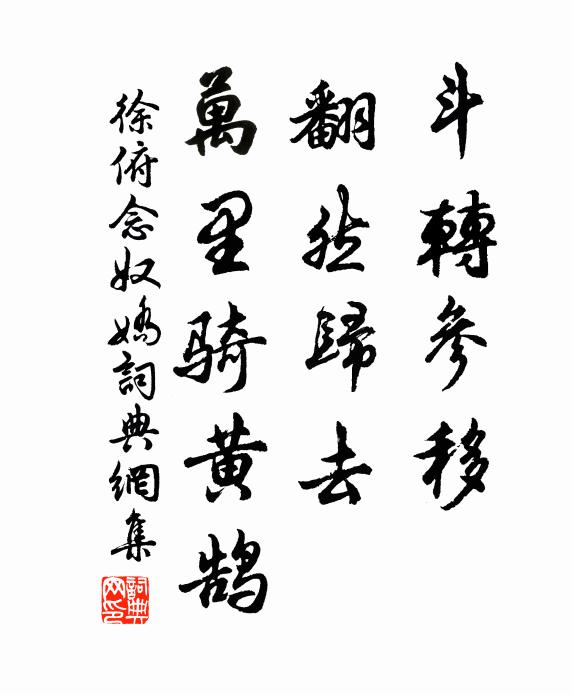 斗轉參移
翻然歸去
萬里騎黃鹄
徐俯念奴嬌詞典網集
詞典
网印